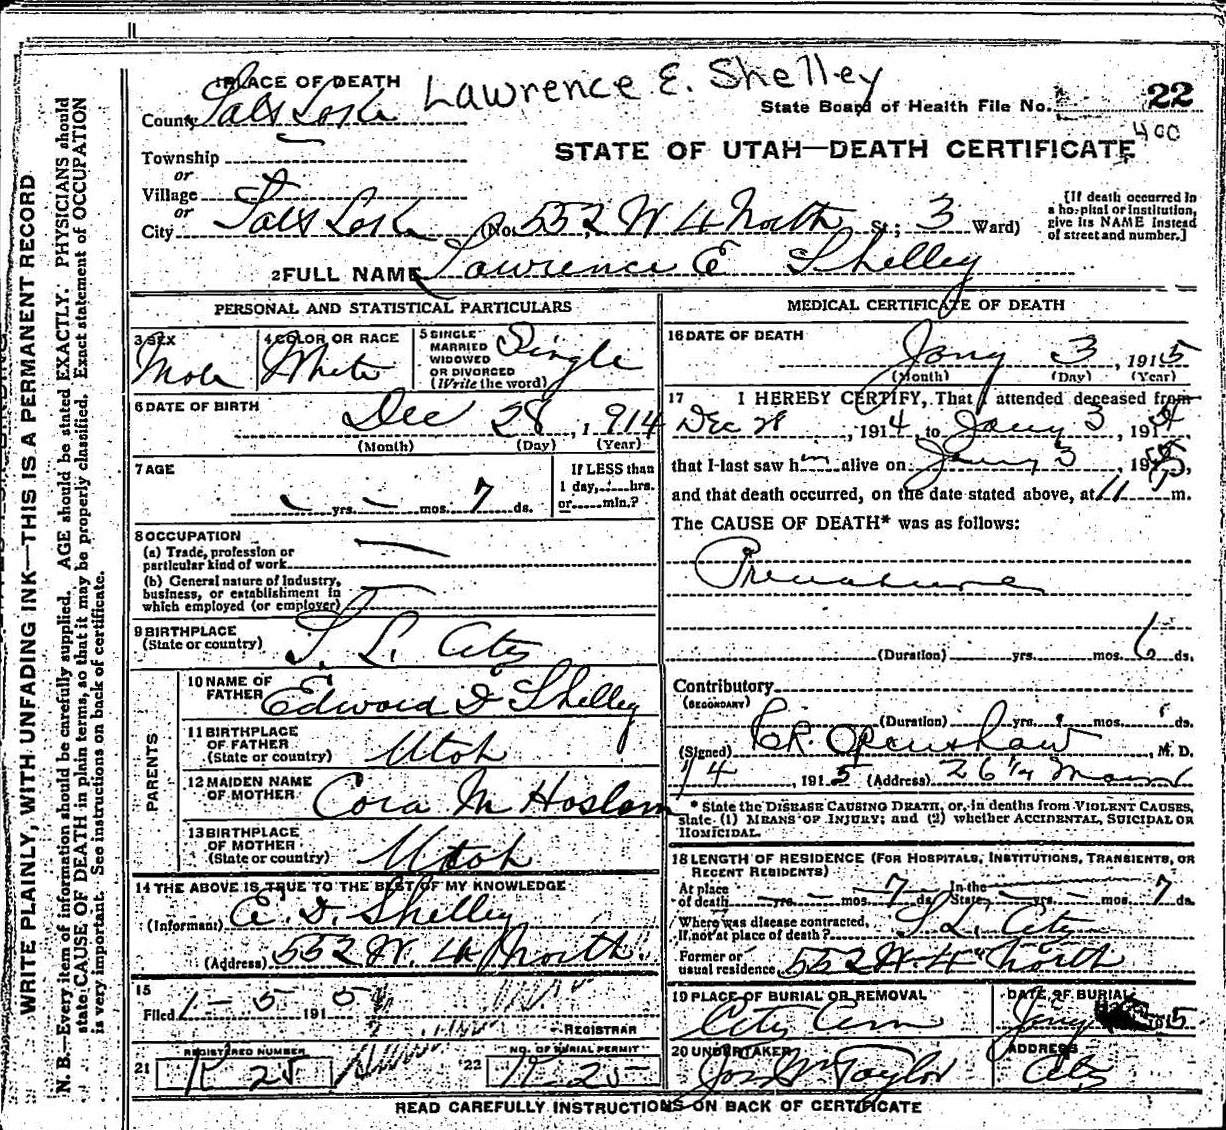 Lawrence E. Shelley
1 PLACE OF DEATH
County Salt Lake
State Board of Health File No. 22
400
STATE OF UTAH—DEATH CERTIFICATE
Township
or
Village
or
City Salt Lake (No. 552 W 4 North St.; 3 Ward)
[If death occurred in
a hospital or institution,
give its NAME instead
of street and number.]
2 FULL NAME Lawrence E Shelley
PERSONAL AND STATISTICAL PARTICULARS
3 SEX
Male
4 COLOR OR RACE
White
5 SINGLE
MARRIED
WIDOWED
OR DIVORCED
(Write the word)
Single
6 DATE OF BIRTH
Dec 28, 1914
(Month) (Day) (Year)
7 AGE
— yrs. — mos. 7 ds.
If LESS than
1 day, hrs.
or min.?
8 OCCUPATION
(a) Trade, profession or
particular kind of work
(b) General nature of Industry,
business, or establishment in
which employed (or employer)
9 BIRTHPLACE
(State or country)
S. L. City
PARENTS
10 NAME OF
FATHER
Edward D Shelley
11 BIRTHPLACE
OF FATHER
(State or country)
Utah
12 MAIDEN NAME
OF MOTHER
Cora M Haslam
13 BIRTHPLACE
OF MOTHER
(State or country)
Utah
14 THE ABOVE IS TRUE TO THE BEST OF MY KNOWLEDGE
(Informant) E. D. Shelley
(Address) 552 W. 4 North
15
Filed 1-5 191 5
REGISTRAR
21 REGISTERED NUMBER
K 25
22 NO. OF BURIAL PERMIT
K 25
MEDICAL CERTIFICATE OF DEATH
16 DATE OF DEATH
Jany 3, 1915
(Month) (Day) (Year)
17 I HEREBY CERTIFY, That I attended deceased from
Dec 28, 1914 to Jany 3, 191
that I last saw him alive on Jany 3, 1915,
and that death occurred, on the date stated above, at 11 P m.
The CAUSE OF DEATH* was as follows:
Premature
(Duration) yrs. mos. 6 ds.
Contributory
(SECONDARY)
(Duration) yrs. mos. ds.
(Signed) C R. Openshaw, M. D.
1/4, 1915 (Address) 26 1/2 Main
* State the DISEASE CAUSING DEATH, or, in deaths from VIOLENT CAUSES,
state (1) MEANS OF INJURY; and (2) whether ACCIDENTAL, SUICIDAL OR
HOMICIDAL.
18 LENGTH OF RESIDENCE (FOR HOSPITALS, INSTITUTIONS, TRANSIENTS, OR
RECENT RESIDENTS)
At place
of death — yrs. — mos. 7 ds.
In the
State — yrs. — mos. 7 ds.
Where was disease contracted,
If not at place of death? S. L. City
Former or
usual residence 552 W. 4" North
19 PLACE OF BURIAL OR REMOVAL
City Cem
DATE OF BURIAL
Jany 1915
20 UNDERTAKER
Jos Wm Taylor
ADDRESS
City
READ CAREFULLY INSTRUCTIONS ON BACK OF CERTIFICATE
WRITE PLAINLY, WITH UNFADING INK—THIS IS A PERMANENT RECORD
N. B.—Every item of information should be carefully supplied. AGE should be stated EXACTLY. PHYSICIANS should
state CAUSE OF DEATH in plain terms, so that it may be properly classified. Exact statement of OCCUPATION
is very important. See instructions on back of certificate.